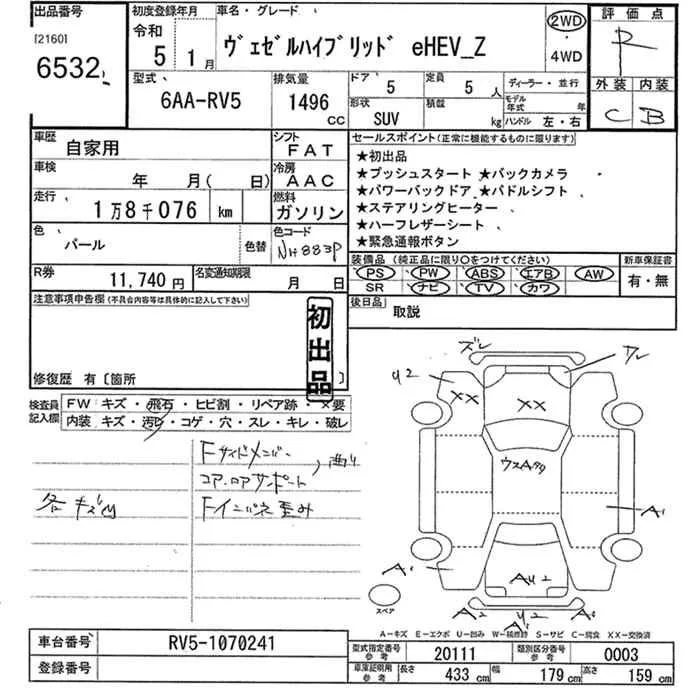 出品番号
[2160]
6532
初度登録年月
令和
5 1月
車名・グレード
ヴェゼルハイブリッド eHEV_Z
2WD
・
4WD
評価点
R
外装 内装
C B
型式
6AA-RV5
排気量
1496
cc
ドア
5
定員
5 人
形状
SUV
積載
kg
ディーラー・並行
モデル年式 年
ハンドル 左・右
車歴
自家用
シフト
FAT
車検
年 月( 日)
冷房
AAC
走行
1万8千076 km
燃料
ガソリン
色
パール
色替
色コード
NH883P
R券
11,740 円
名変通知期限
月 日
セールスポイント(正常に機能するものに限ります)
★初出品
★プッシュスタート ★バックカメラ
★パワーバックドア ★パドルシフト
★ステアリングヒーター
★ハーフレザーシート
★緊急通報ボタン
装備品(純正品に限り○をつけてください)
PS PW ABS エアB AW
SR ナビ TV カワ
新車保証書
有・無
後日品
取説
注意事項申告欄(不具合内容等は具体的に記入して下さい)
初出品
修復歴 有〔箇所 〕
検査員記入欄
FW キズ・飛石・ヒビ割・リペア跡・×要
内装 キズ・汚れ・コゲ・穴・スレ・キレ・破レ
Fサイドメンバー
コア、ロアサポート
曲り
Fインパネ歪み
ズレ
U2
XX
XX
ウスA
A1
A1
AU2
A2
U2
スペア
A-キズ E-エクボ U-凹み W-補修跡 S-サビ C-腐食 XX-交換済
車台番号
RV5-1070241
登録番号
型式指定番号
参考
20111
類別区分番号
参考
0003
車庫証明用
参考
長さ 433 cm
幅 179 cm
高さ 159 cm